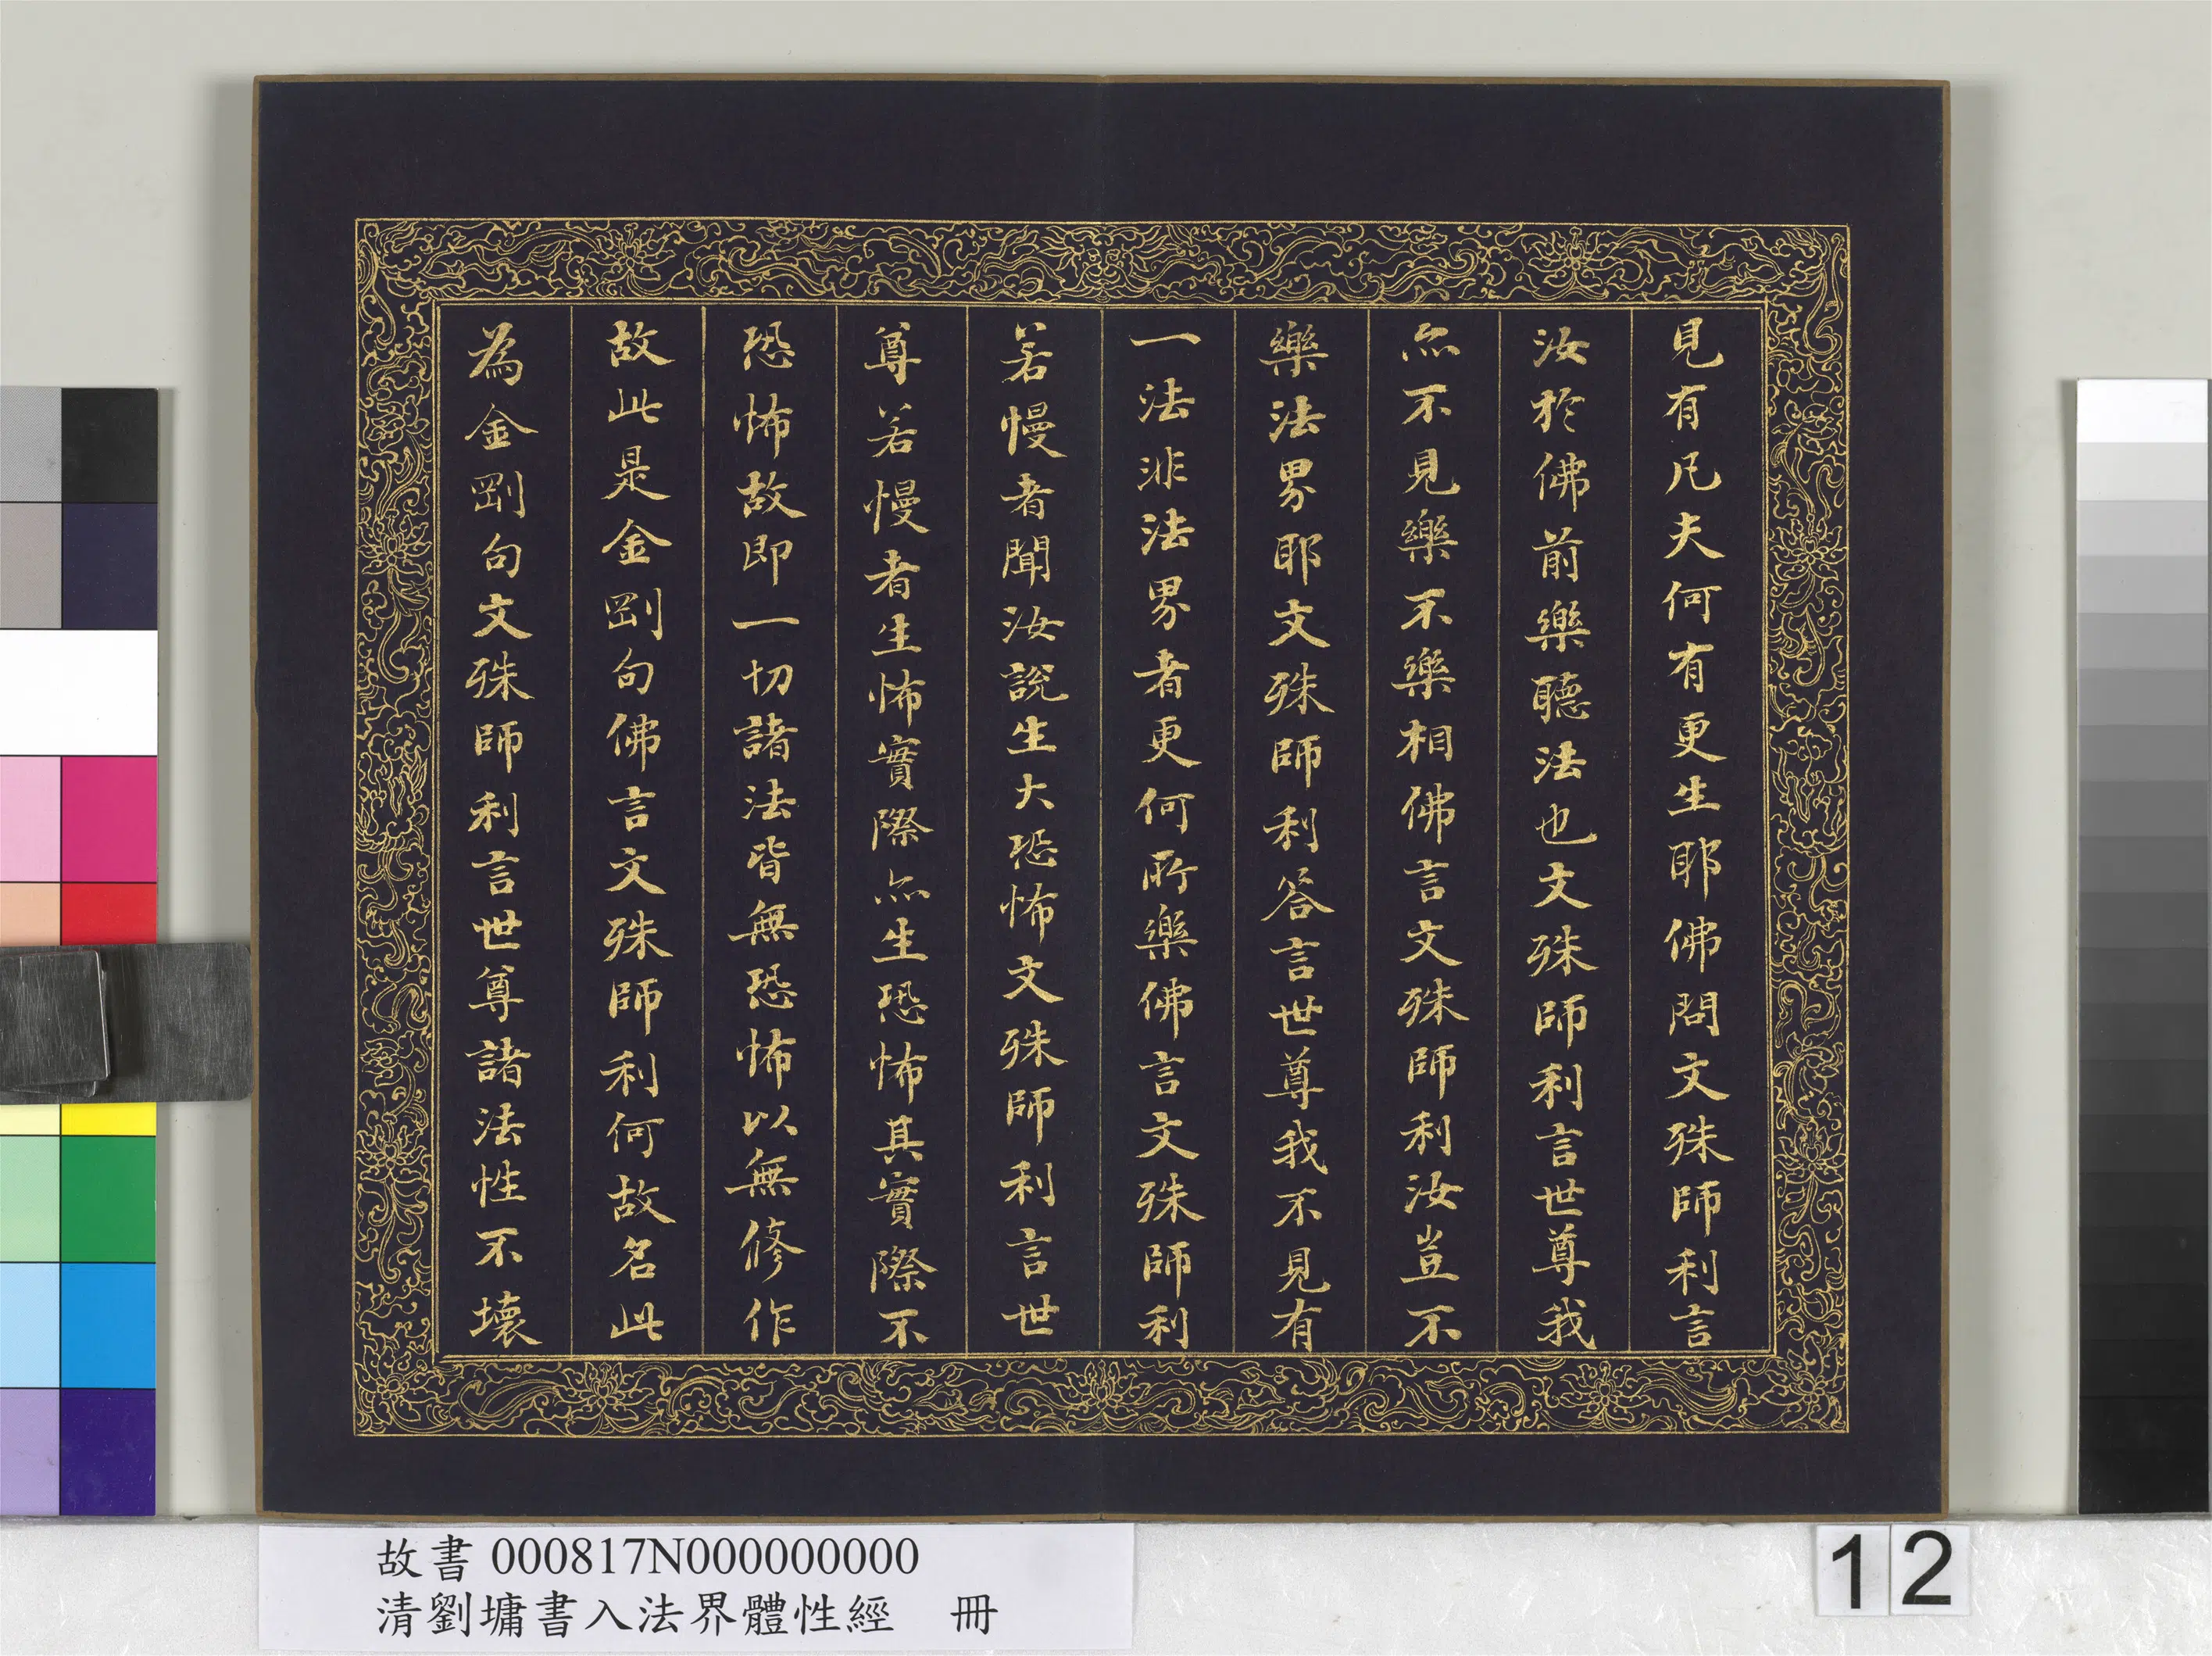 見有凡夫何有更生耶佛問文殊師利言
汝於佛前樂聽法也文殊師利言世尊我
亦不見樂不樂相佛言文殊師利汝豈不
樂法界耶文殊師利答言世尊我不見有
一法非法界者更何所樂佛言文殊師利
若慢者聞汝說生大恐怖文殊師利言世
尊若慢者生怖實際亦生恐怖其實際不
恐怖故即一切諸法皆無恐怖以無修作
故此是金剛句佛言文殊師利何故名此
為金剛句文殊師利言世尊諸法性不壞
故書 000817N000000000
清劉墉書入法界體性經 冊
12